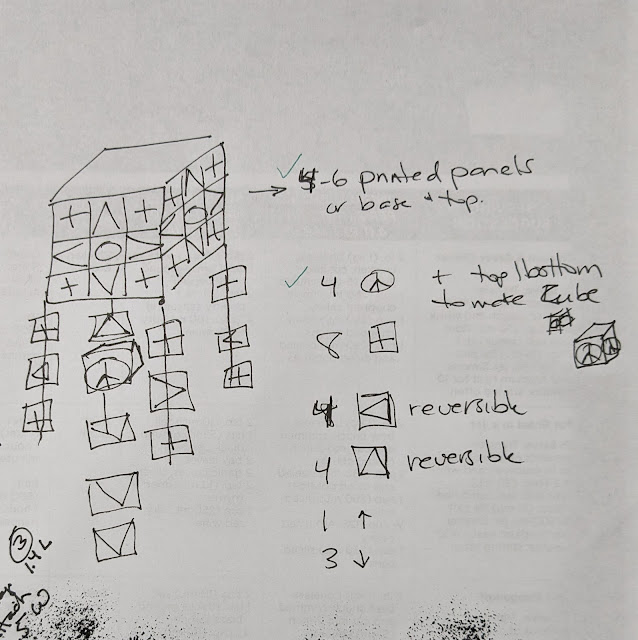 4-6 printed panels
or base + top.
4 + top/bottom
to make cube
8
4 reversible
4 reversible
1 ↑
3 ↓
3
1.4L